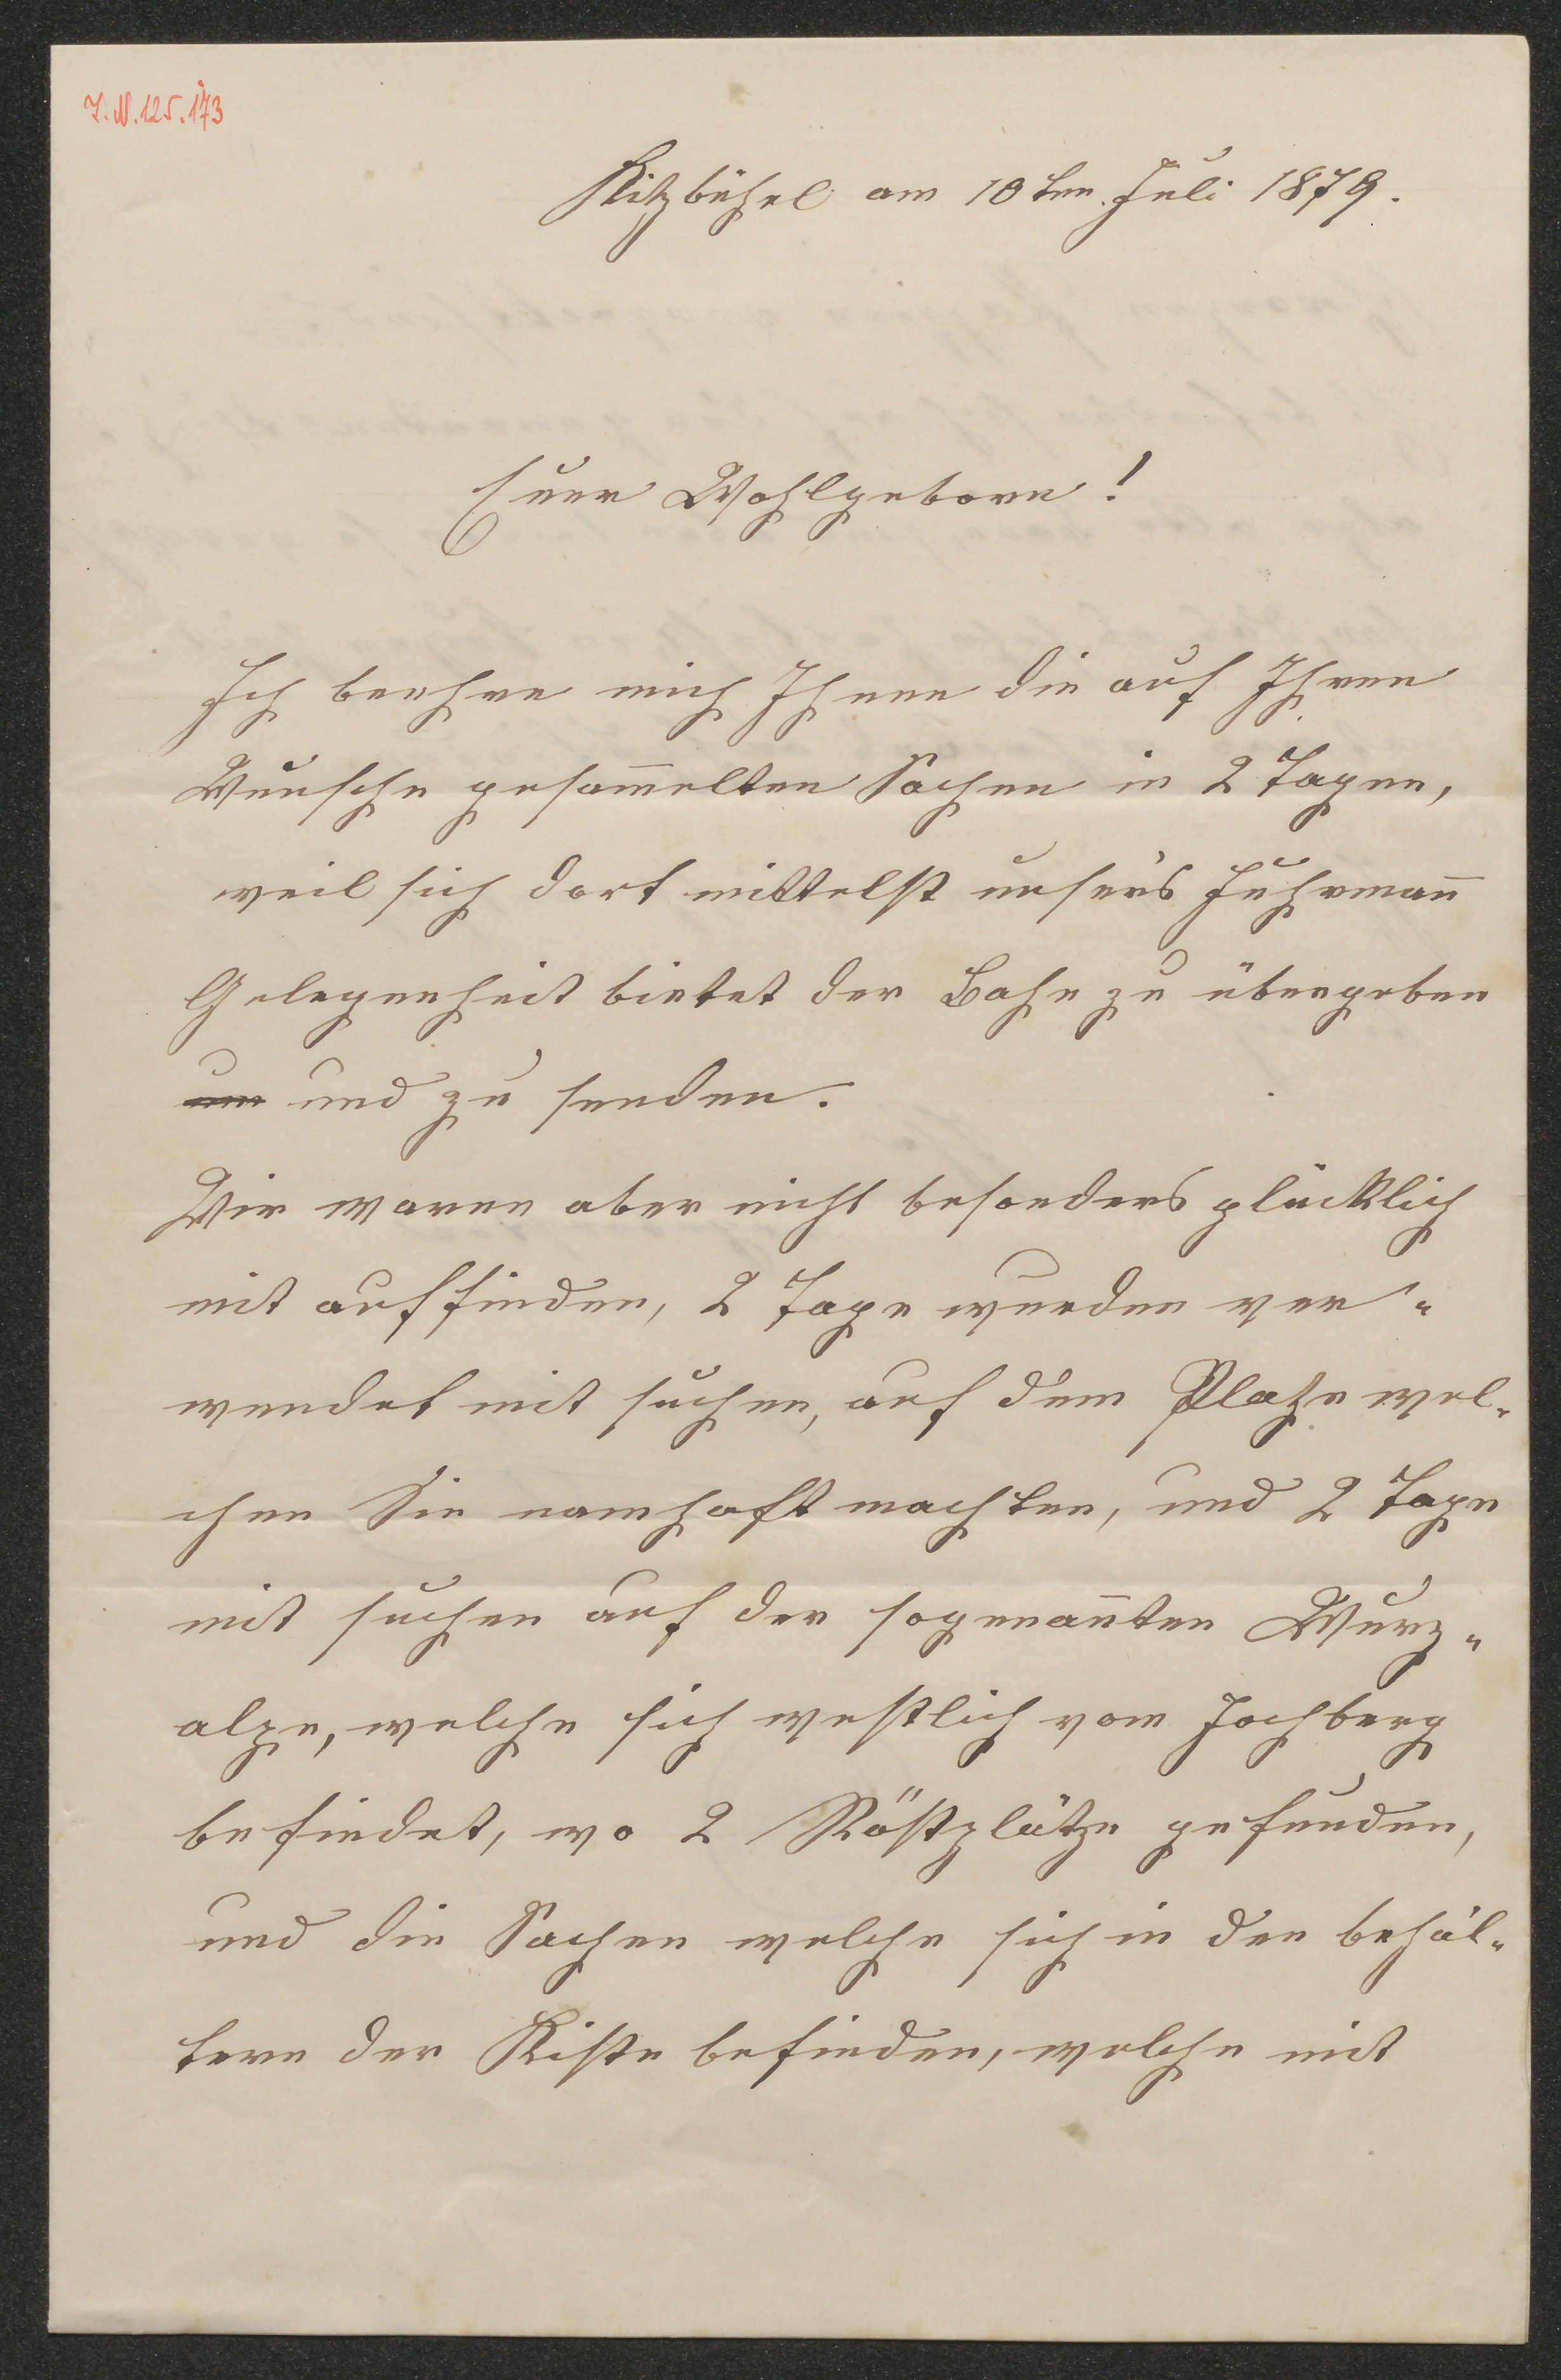 I.N.125.173
Kitzbühel am 10ten Juli 1879.
Euer Wohlgeborn!
Ich beehre mich Ihnen die auf Ihren
Wunsche gesam̄elten Sachen in 2 Tagen,
weil sich dort mittelst unsers Fuhrman̄
Gelegenheit bietet der Bahn zu übergeben
um und zu senden.
Wir waren aber nicht besonders glücklich
mit auffinden, 2 Tage wurden ver„
wendet mit suchen, auf dem Platze wel„
chen Sie namhaft machten, und 2 Tage
mit suchen auf der sogenan̄ten Wurz„
alpe, welche sich westlich vom Jochberg
befindet, wo 2 Röstplätze gefunden,
und die Sachen welche sich in den behäl„
tern der Kiste befinden, welche mit